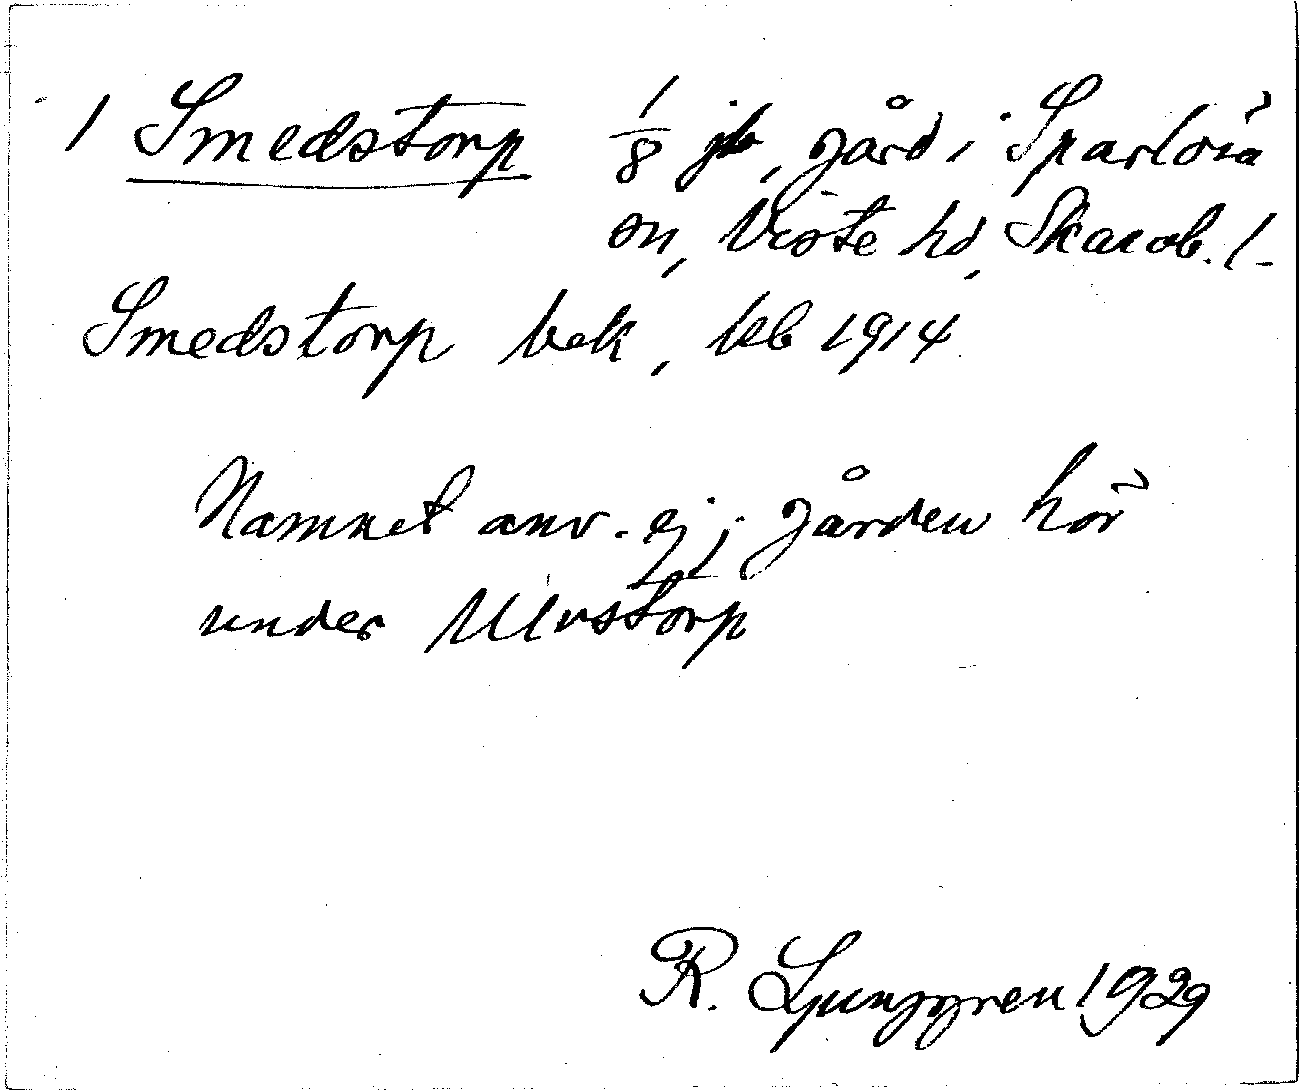 1 Smedstorp 1/8 jb, gård i Sparlösa
sn, Viste hd, Skarab. l.
Smedstorp bek, kb 1914
Namnet anv. ej; gården hör
under Ulvstorp
R. Ljunggren 1929